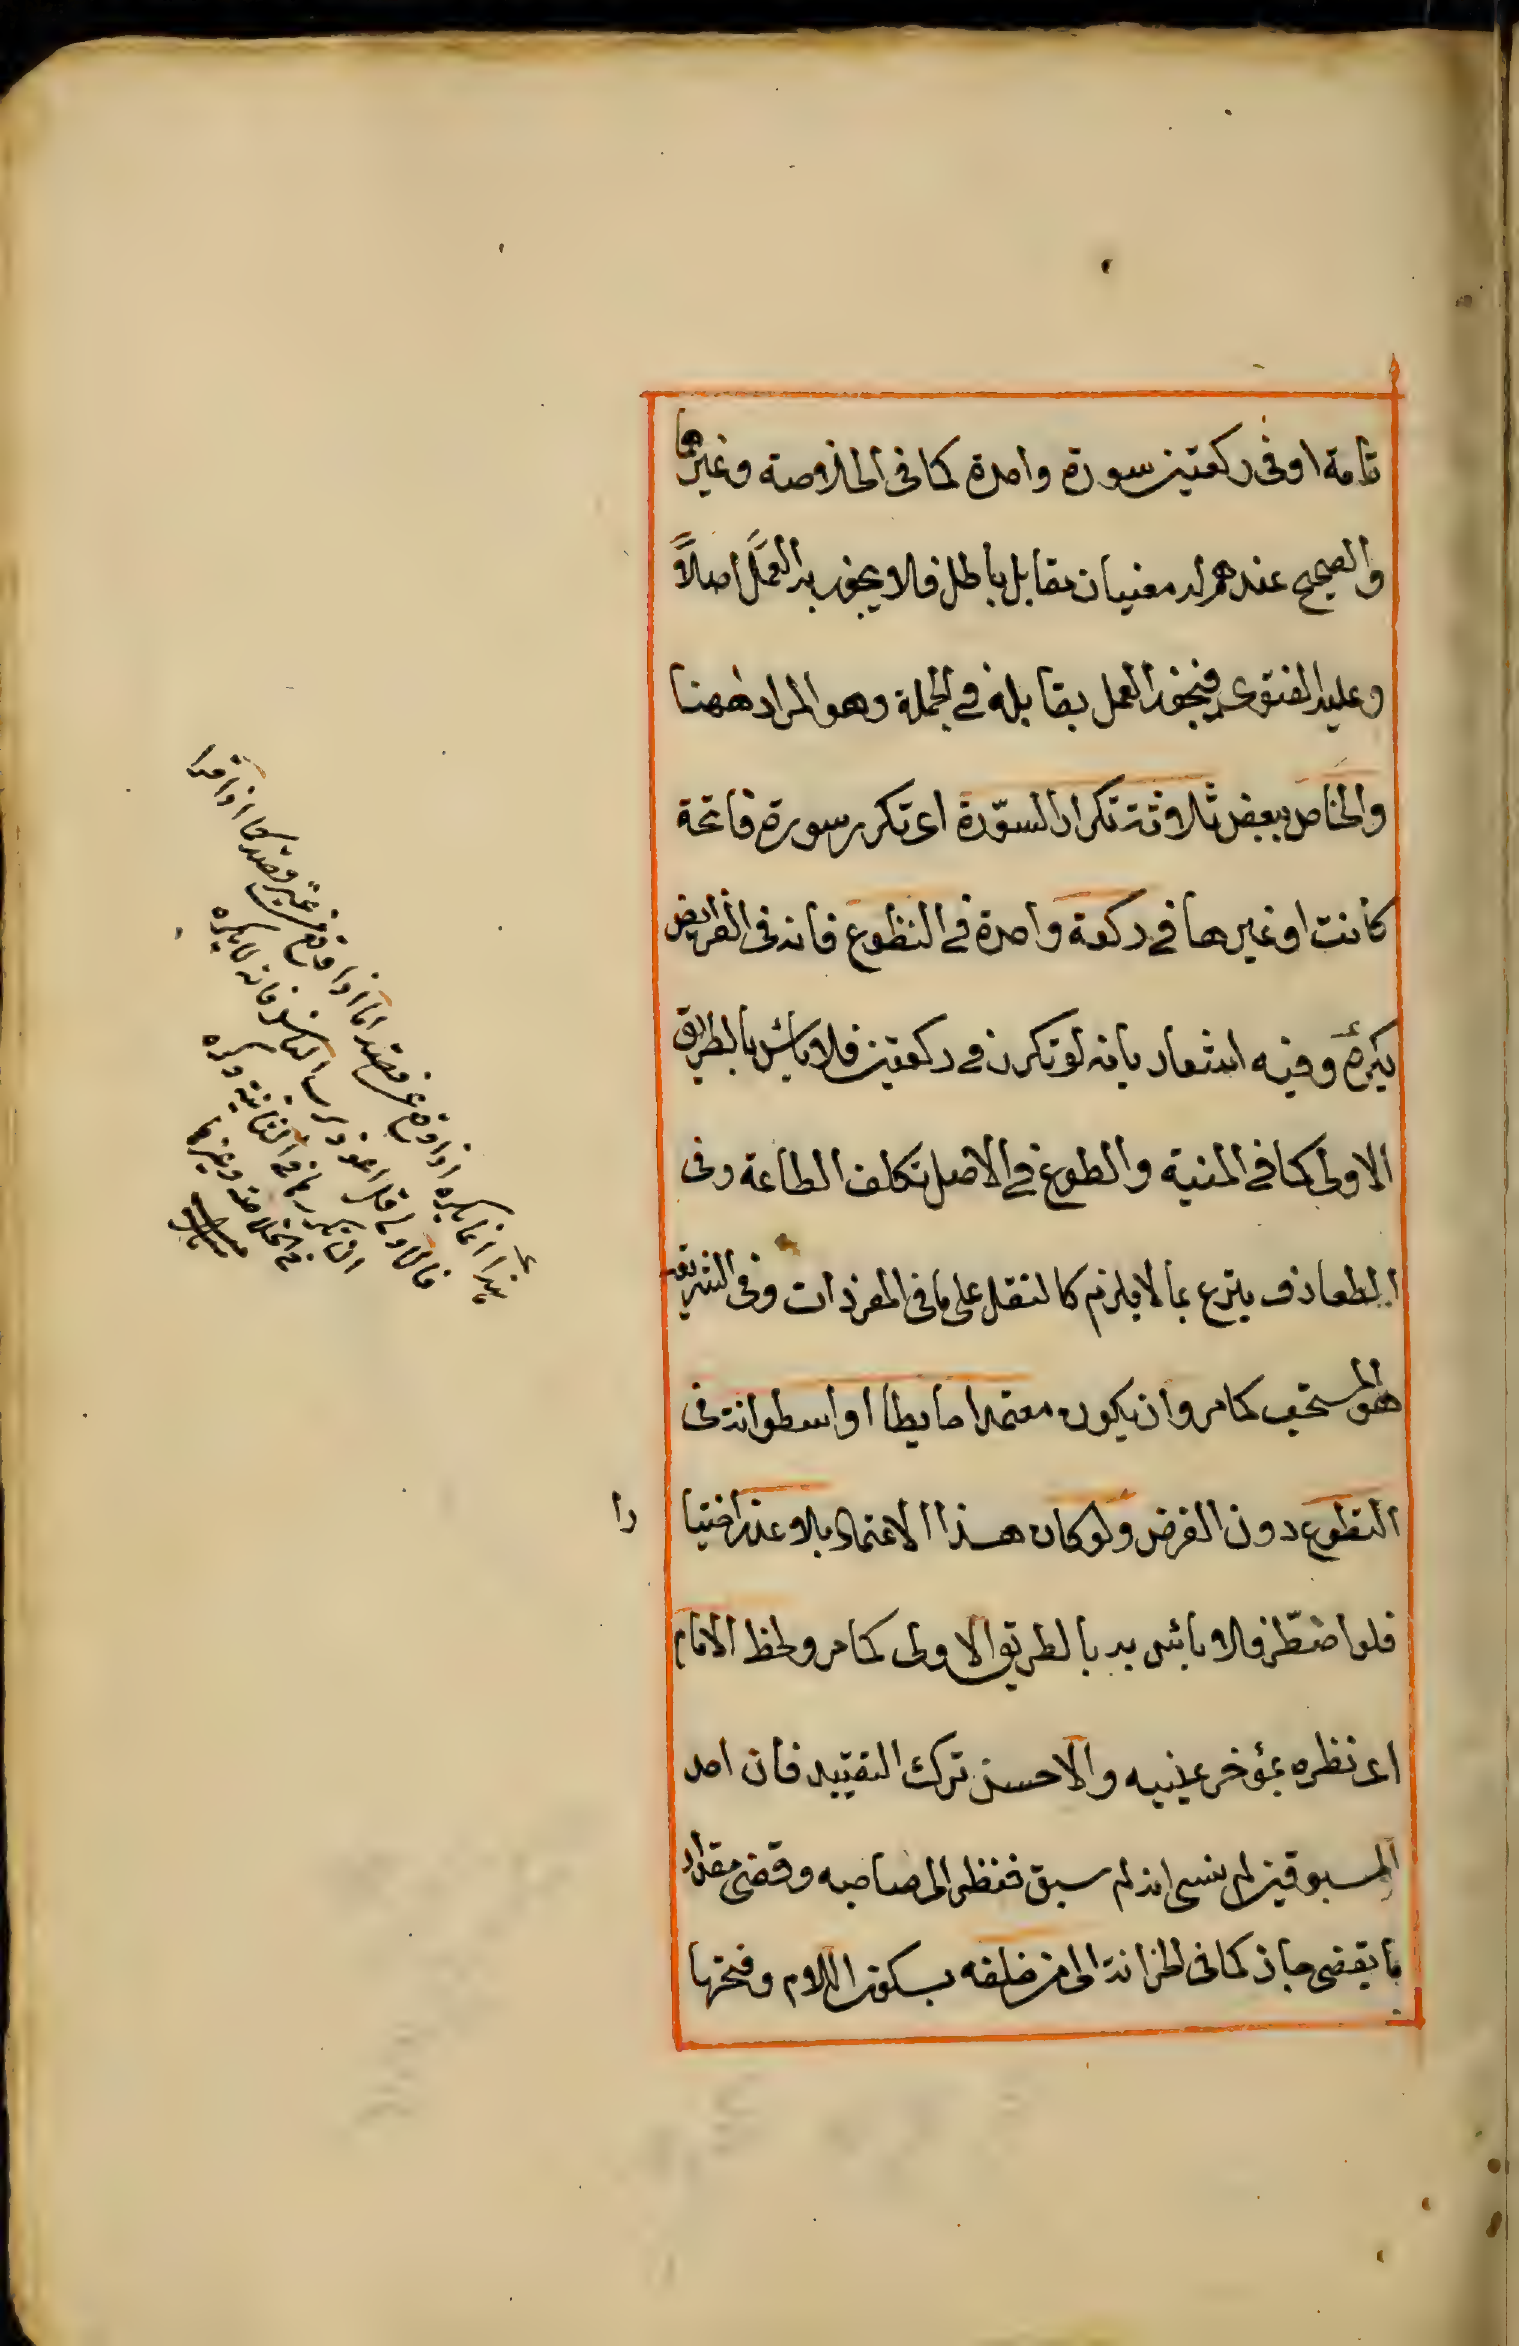 تامة او فى ركعتين سورة واحدة كما فى الخلاصة وغيرها
والصحيح عندهم له معنيان مقابل باطل فلا يجوز به العمل اصلاً
وعليه الفتوى فيجوز العمل بمقابله فى الجملة وهو المراد ههنا
والخامس بعض ثلاثة تكرار السّورة اى تكرر سورة فاتحة
كانت او غيرها فى ركعة واحدة فى التطوع فانه فى الفرايض
يكره وفيه اشعار بانه لو تكرر فى ركعتين فلا بأس بالطريق
الاولى كما فى المنية والطوع فى الاصل تكلف الطاعة وفى
التعارف يتبرع بما لا يلزم كالتنفل على ما فى المفردات وفى الشريعة
هو المستحب كما مر وان يكون معتمدا حايطا او اسطوانة فى
التطوع دون الفرض ولو كان هذا الاعتماد بلا عذر اختيا را
فلو اضطّر فلا بأس به بالطريق الاولى كما مر ولحظ الامام
اى نظره بمؤخر عينيه والاحسن ترك التقييد فان احد
المسبوقين لم ينسى انه لم سبق فنظر الى صاحبه وقضى مقدار
ما يقضى جاز كما فى الخزانة الى من خلفه بسكون اللام وفتحها
هذا انما يكره اذا وقع عن قصد اما اذا وقع من غير قصد كما اذا قرأ
فى الاولى قل اعوذ برب الناس فانه لا يكره
ان يكررها فى الثانية وكره
فى الخلاصة وغيرها